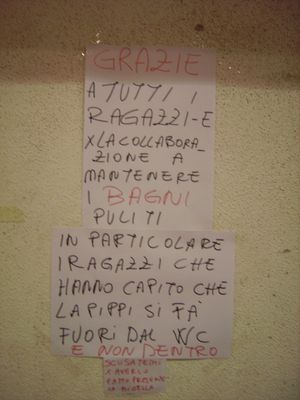 GRAZIE
A TUTTI I
RAGAZZI-E
X LA COLLABORA_
ZIONE A
MANTENERE
I BAGNI
PULITI
IN PARTICOLARE
I RAGAZZI CHE
HANNO CAPITO CHE
LA PIPPI SI FÀ
FUORI DAL WC
E NON DENTRO
SCUSATEMI
X AVERLO
FATTO PRESENTE